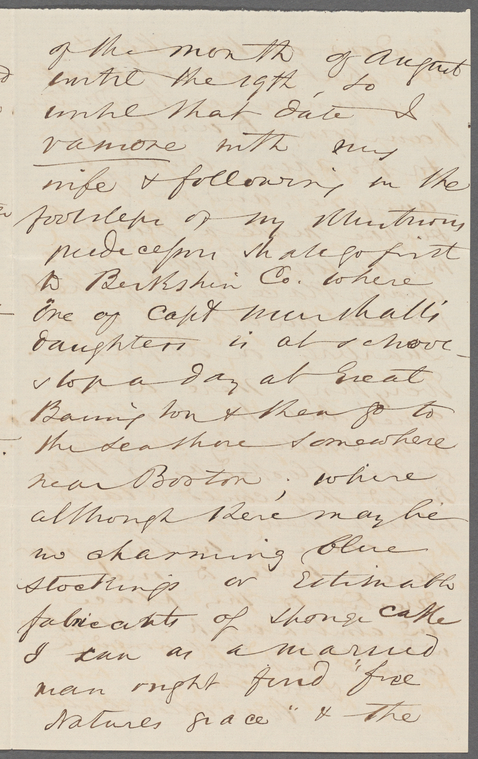 of the month of August
until the 19th, so
until that date I
vamose with my
wife & following in the
footsteps of my illustrious
predecessor shall go first
to Berkshire Co. where
one of Capt Marshall's
daughters is at school -
stop a day at Great
Barrington & then go to
the seashore somewhere
near Boston; where
although there may be
no charming blue
stockings or Estimable
fabricants of sponge cake
I can as a married
man ought find "free
Natures grace" & the